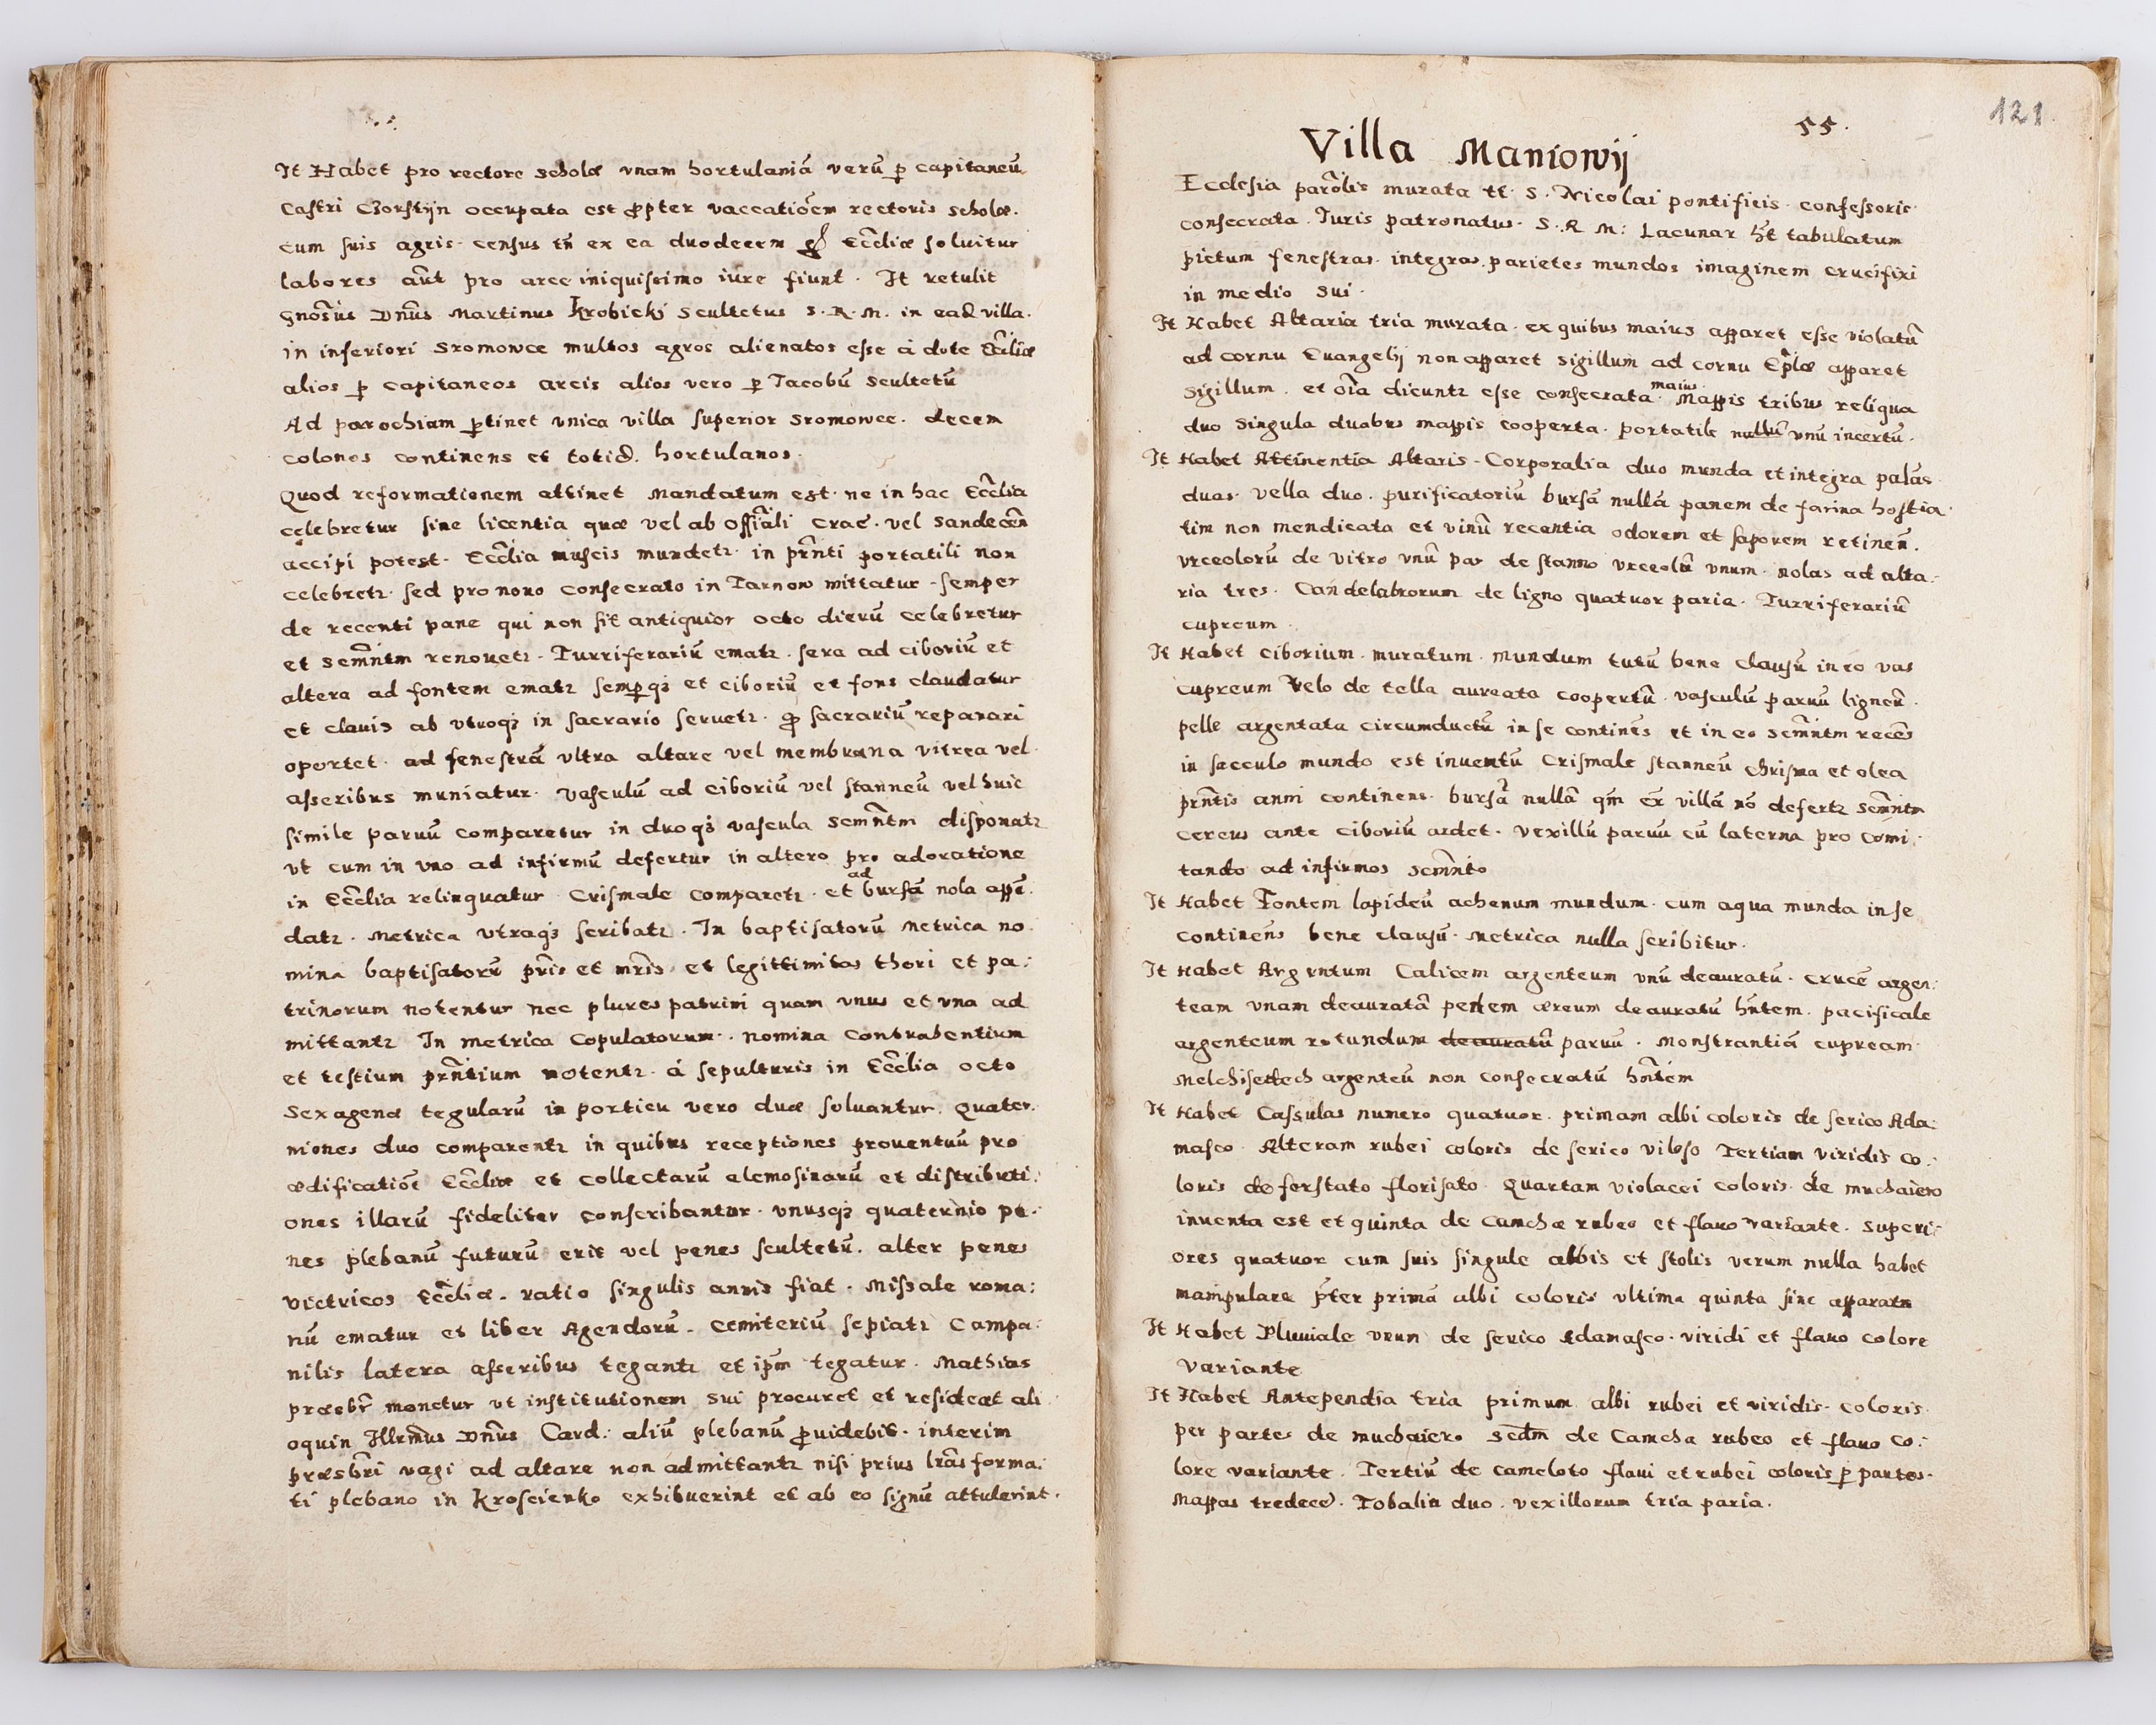 It Habet pro rectore scholæ vnam hortulaniā verū p capitaneū
Castri Czorstijn occupata est ꝓpter vaccatiōēm rectoris scholæ.
cum suis agris. census tn̄ ex ea duodecem Eccl̄iæ soluitur
labores aūt pro arce iniquissimo iure fiunt. It retulit
gnōsus Dn̄us Martinus Krobicki Scultetus S. R. M. in ead villa.
in inferiori Sromowce multos agros alienatos esse à dote Eccl̄iæ
alios p capitaneos arcis alios vero p Jacobū Scultetū
Ad parochiam ptinet vnica villa superior Sromowce. decem
colonos continens et totid. hortulanos.
Quod reformationem attinet Mandatum est. ne in hac Eccl̄ia
celebretur sine licentia quæ vel ab Offīali Crac. vel Sandecēn
accipi potest. Eccl̄ia muscis mundetꝛ. in prn̄ti portatili non
celebretꝛ. sed pro nouo consecrato in Tarnow mittatur. semper
de recenti pane qui non sit antiquior octo dierū celebretur
et semn̄tm renouetꝛ. Turriferariū ematꝛ. sera ad ciboriū et
altera ad fontem ematꝛ semꝑqꝫ et ciboriū et fons claudatur
et clauis ab vtroqꝫ in sacrario seruetꝛ. ꝓ sacrariū reparari
oportet. ad fenestrā vltra altare vel membrana vitrea vel
asseribus muniatur. Vasculū ad ciboriū vel stanneū vel huic
simile paruū comparetur in duoqꝫ vascula semn̄tm disponatꝛ
vt cum in vno ad infirmū defertur in altero pro adoratione
in Eccl̄ia relinquatur Crismale comparetꝛ. et ad bursā nola appē.
datꝛ. Metrica vtraqꝫ scribatꝛ. In baptisatorū metrica no
mina baptisatorū pr̄is et mr̄is et legittimitas thori et pa:
trinorum notentur nec plures patrini quam vnus et vna ad
mittantꝛ In metrica Copulatorum. nomina Contrahentium
et testium prn̄tium notentꝛ. à sepulturis in Eccl̄ia octo
Sexagenæ tegularū in porticu vero duæ soluantur. Quater.
niones duo comparentꝛ in quibus receptiones prouentuū pro
ædificatiōē Eccl̄iæ et collectarū elemosinarū et distributi:
ones illarū fideliter conscribantur. vnusqꝫ quaternio pe:
nes plebanū futurū erit vel penes scultetū. alter penes
victricos Eccl̄iæ. ratio singulis annis fiat. Missale roma:
nū ematur et liber Agendorū. Cemiteriū sepiatꝛ Campa:
nilis latera asseribus tegantꝛ et ipm̄ tegatur. Mathias
præsbr̄ monetur vt institutionem sui procuret et resideat ali
oquin Illrm̄us Dn̄us Card: aliū plebanū ꝓuidebit. interim
præsbri vagi ad altare non admittantꝛ nisi prius lrās forma:
ti plebano in Kroscienko exhibuerint et ab eo signū attulerint.
55.
121
Villa Maniowij
Ecclesia parōlis murata tt. S. Nicolai pontificis confessoris
consecrata. Iuris patronatus. S. R. M: Lacunar hēt tabulatum
pictum fenestras integras parietes mundos imaginem crucifixi
in medio sui.
It Habet Altaria tria murata. ex quibus maius apparet esse violatū
ad cornu Euangelij non apparet sigillum ad cornu Ep̄læ apparet
Sigillum. et oīa dicuntꝛ esse consecrata. maius Mappis tribus reliqua
duo singula duabus mappis cooperta. portatile nullū vnū incertū.
It Habet Attinentia Altaris. Corporalia duo munda et integra palās
duas. vella duo. purificatoriū bursā nullā panem de farina hostia
tim non mendicata et vinū recentia odorem et saporem retinen̄.
vrceolorū de vitro vnū par de stanno vrceolū vnum. nolas ad alta:
ria tres. Candelabrorum de ligno quatuor paria. Turriferariū
cupreum.
It Habet Ciborium. muratum. Mundum tutū bene clausū in eo vas
cupreum velo de tella aureata coopertū. vasculū paruū ligneū.
pelle argentata circumductū in se continēs et in eo semn̄tm recēs
in sacculo mundo est inuentū Crismale stanneū chrisma et olea
prn̄tis anni continens. bursā nullā qm̄ ex̄ villā nō defertꝛ semn̄tm
cereus ante ciboriū ardet. vexillū paruū cū laterna pro comi:
tando ad infirmos semn̄to
It Habet Fontem lapideū ahenum mundum. cum aqua munda in se
continēns bene clausū. Metrica nulla scribitur.
It Habet Argentum Calicem argenteum vnū deauratū. crucē argen:
team vnam deauratā pedem æreum deauratū hn̄tem. pacificale
argenteum rotundum deauratū paruū. Monstrantiā cupream.
Melchisedech argenteū non consecratū hn̄tem
It Habet Cassulas numero quatuor. primam albi coloris de serico Ada:
masco. Alteram rubei coloris de serico viloso Tertiam viridis co:
loris de ferstato florisato. Quartam violacei coloris de muchaiero
inuenta est et quinta de Camcha rubeo et flauo variante. superi:
ores quatuor cum suis singule albis et stolis verum nulla habet
manipulare p̄ter primā albi coloris vltima quinta sine apparatu
It Habet Pluuiale vnum de serico Adamasco. viridi et flauo colore
variante
It Habet Antependia tria primum albi rubei et viridis. coloris
per partes de muchaiero secdm̄ de Camcha rubeo et flauo co:
lore variante. Tertiū de Cameloto flaui et rubei coloris p partes.
Mappas tredecē. Tobalia duo. vexillorum tria paria.